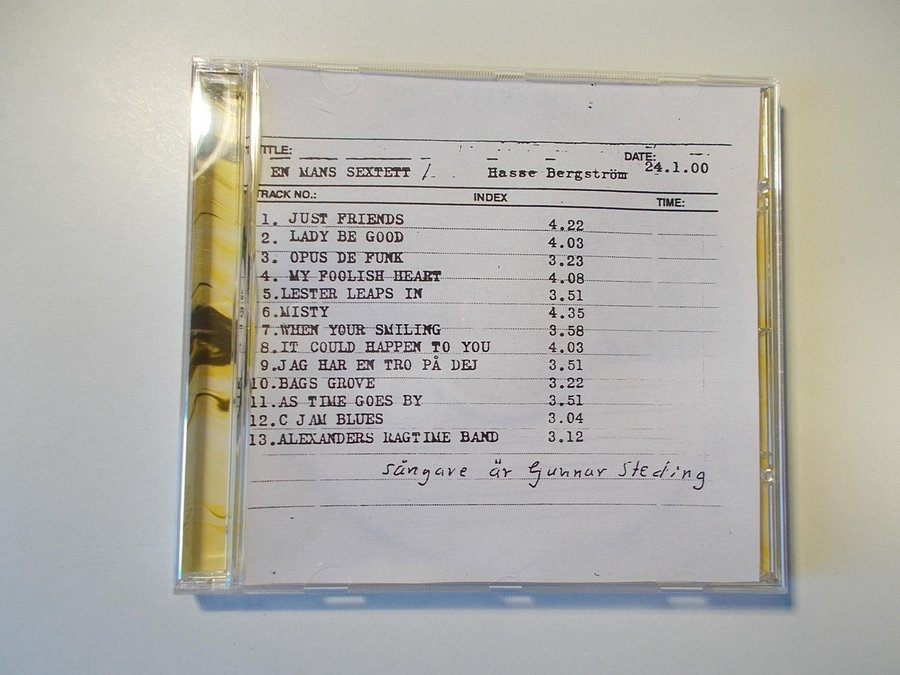 TITLE: DATE:
EN MANS SEXTETT / Hasse Bergström 24.1.00
TRACK NO.: INDEX TIME:
1. JUST FRIENDS 4.22
2. LADY BE GOOD 4.03
3. OPUS DE FUNK 3.23
4. MY FOOLISH HEART 4.08
5.LESTER LEAPS IN 3.51
6.MISTY 4.35
7.WHEN YOUR SMILING 3.58
8.IT COULD HAPPEN TO YOU 4.03
9.JAG HAR EN TRO PÅ DEJ 3.51
10.BAGS GROVE 3.22
11.AS TIME GOES BY 3.51
12.C JAM BLUES 3.04
13.ALEXANDERS RAGTIME BAND 3.12
sångare är Gunnar Steding